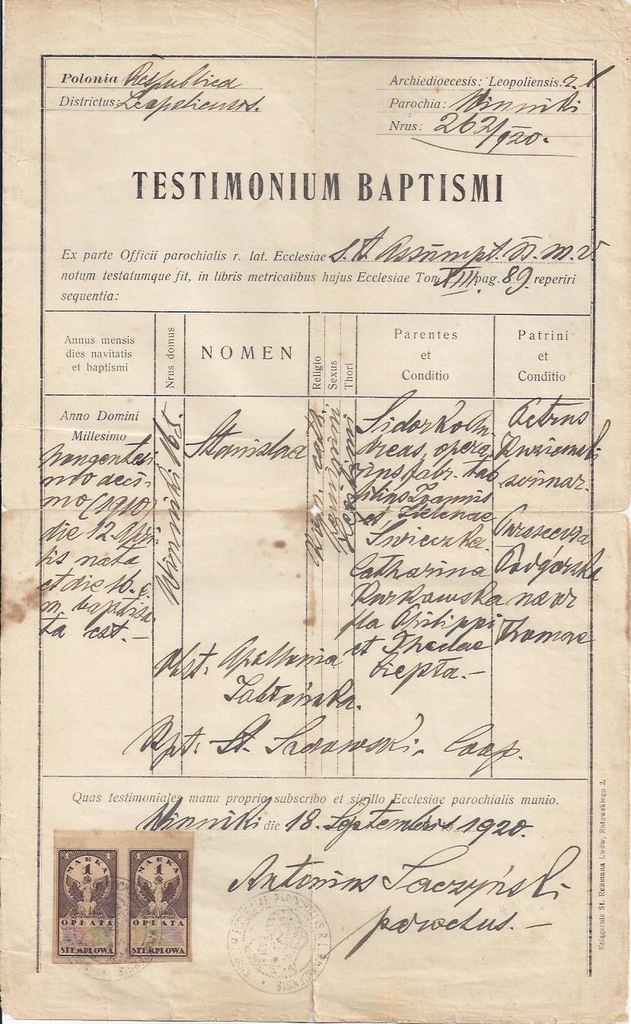 Polonia Respublica
Districtus: Leopoliensis.
Archiedioecesis: Leopoliensis. r. l.
Parochia: Winniki
Nrus: 262/920.
TESTIMONIUM BAPTISMI
Ex parte Officii parochialis r. lat. Ecclesiae s. t. Assumpt. B. M. V.
notum testatumque fit, in libris metricalibus hujus Ecclesiae Tom. XIII pag. 89 reperiri
sequentia:
Annus mensis
dies navitatis
et baptismi
Nrus domus
NOMEN
Religio
Sexus
Thori
Parentes
et
Conditio
Patrini
et
Conditio
Anno Domini
Millesimo
nongentesi
mo deci
mo (1910)
die 12 Apri
lis nata
et die 16. e.
m. baptisa
ta est. —
Winniki 165.
Stanislaa
Rom. cath.
Sidorko An
dreas, opera
rius fabr. tab.
filius Joannis
et Helenae
Catharina
Kurkowska
fla Philippi
et Theclae
Petrus
Parascevia
Podgórska
uxor
Thomae
Obst. Apollonia
Jabłońska.
Bpt. St. Sadowski, Coop.
Quas testimoniales manu propria subscribo et sigillo Ecclesiae parochialis munio.
Winniki die 18. Septembris 1920.
Antonius
parochus. —
1 MARKA 1
OPŁATA
STEMPLOWA
1 MARKA 1
OPŁATA
STEMPLOWA
Księgarnia St. Reimana Lwów, Rutowskiego 2.